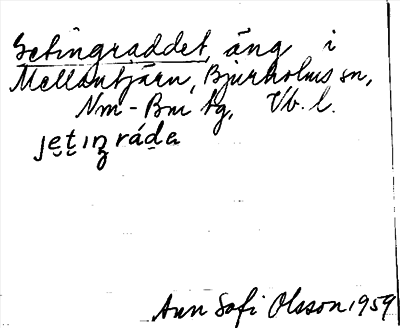 Getingraddet, äng i
Mellantjärn, Bjurholms sn,
Nm - Bm tg, Vb. l.
Ann Sofi Olsson 1959